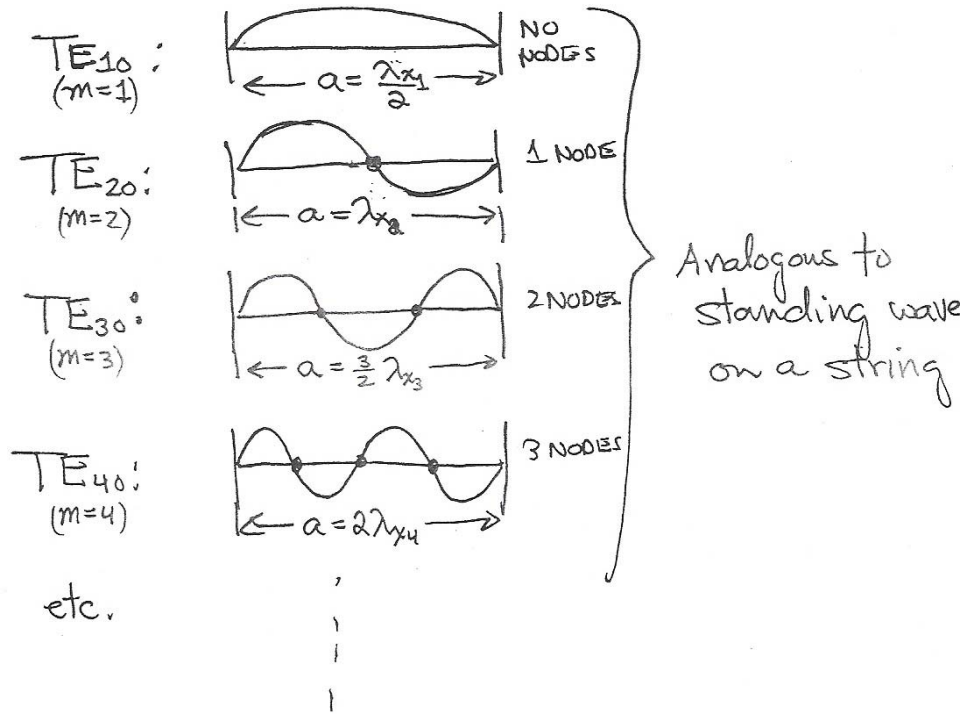 TE₁₀:
(m=1)
a = λx₁/2
NO
NODES
TE₂₀:
(m=2)
a = λx₂
1 NODE
TE₃₀:
(m=3)
a = 3/2 λx₃
2 NODES
TE₄₀:
(m=4)
a = 2λx₄
3 NODES
etc.
Analogous to
standing wave
on a string